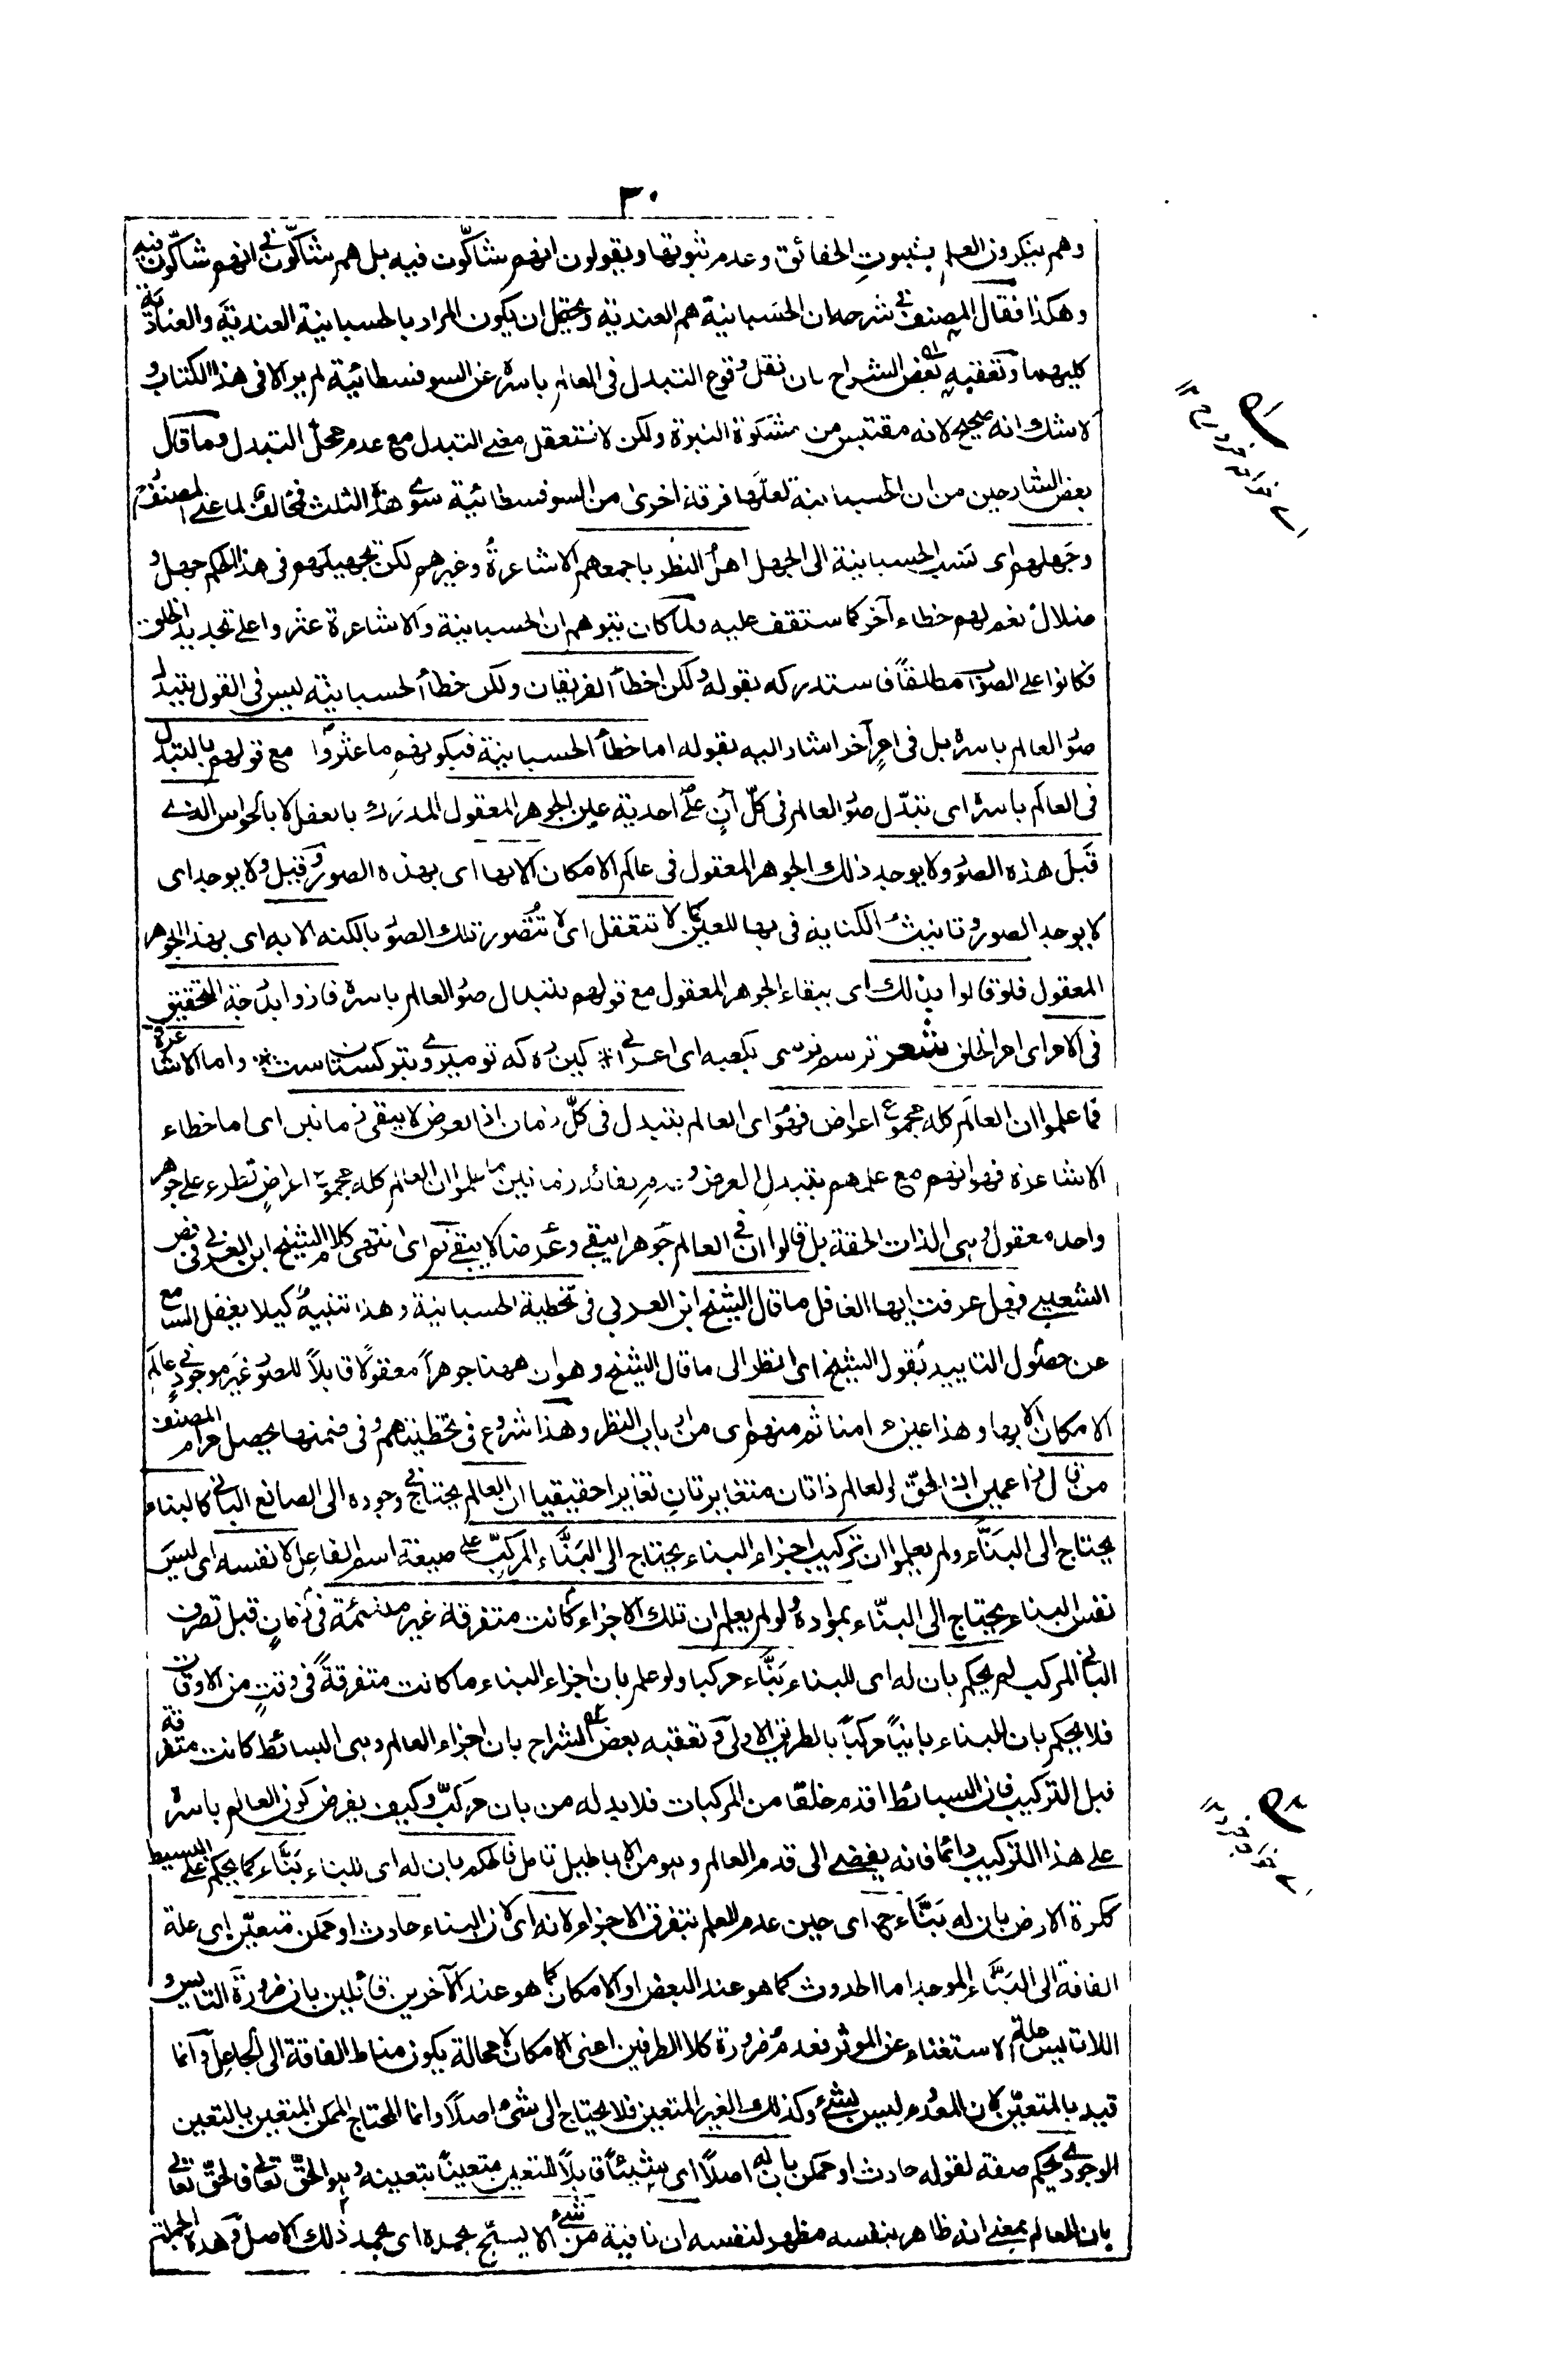 ٣٠
وهم ينكرون العلم بثبوتِ الحقائق وعدم ثبوتها ويقولون انهم شاكّون فيه بل هم شاكّون فى انهم شاكّون فيه
وهكذا فقال المصنف فى شرحه ان الحسبانية هم العندية ويحتمل ان يكون المراد بالحسبانية العندية والعنادية
كليهما وتعقبه بعض الشراح بان نقل وقوع التبدل فى العالم باسره عن السوفسطائية لم ير الا فى هذا الكتاب و
لا شك انه صحيح لانه مقتبس من مشكوة النبوة ولكن لا نتعقل معنى التبدل مع عدم محل التبدل وما قال
بعض الشارحين من ان الحسبانية لعلها فرقة اخرى من السوفسطائية سوى هذه الثلث فمخالف لما عنى المصنف
وجهلهم اى نسب الحسبانية الى الجهل اهل النظر باجمعهم الاشاعرة وغيرهم لكن تجهيلهم فى هذا الحكم جهل و
ضلال نعم لهم خطاء آخر كما ستقف عليه ولما كان يتوهم ان الحسبانية والاشاعرة عثروا على تجديد الخلق
فكانوا على الصواب مطلقاً فاستدركه بقوله ولكن اخطأ الفريقان ولكن خطأ الحسبانية ليس فى القول بتبدل
صور العالم باسره بل فى امرٍ آخر اشار اليه بقوله اما خطأ الحسبانية فبكونهم ما عثروا مع قولهم بالتبدل
فى العالم باسره اى تبدّل صور العالم فى كلّ آنٍ على احدية عين الجوهر المعقول المدرك بالعقل لا بالحواس الذى
قَبِلَ هذه الصور ولا يوجد ذلك الجوهر المعقول فى عالم الامكان الا بها اى بهذه الصور وقيل ولا يوجد اى
لا يوجد الصور وتانيث الكناية فى بها للعين كما لا تتعقل اى لا تُتَصور تلك الصور بالكنه الا به اى بهذا الجوهر
المعقول فلو قالوا بذلك اى ببقاء الجوهر المعقول مع قولهم بتبدل صور العالم باسره فازوا بدرجة التحقيق
فى الامر اى امر الخلق شعر ترسم نرسى بكعبه اى اعرابى * كين ره كه تو ميروى بتركستان است * واما الاشاعرة
فما علموا ان العالم كله مجموع اعراض فهو اى العالم يتبدل فى كلّ زمان اذ العرض لا يبقى زمانين اى اما خطاء
الاشاعرة فهو انهم مع علمهم بتبدل العرض وعدم بقائه زمانين ما علموا ان العالم كله مجموع اعراضٍ تطرء على جوهر
واحد معقول وهى الذات الحقة بل قالوا ان فى العالم جوهرا يبقى وعرضا لا يبقى نعم اى انتهى كلام الشيخ ابن العربى فى فص
الشعيبى فهل عرفت ايها الغافل ما قال الشيخ ابن العربى فى تخطية الحسبانية وهذا تنبيهٌ كيلا يغفل السامع
عن حصول التاييد بقول الشيخ اى انظر الى ما قال الشيخ وهو ان ههنا جوهراً معقولاً قابلاً للصور غير موجود فى عالم
الامكان الا بها وهذا عين مرامنا ثم منهم اى من ارباب النظر وهذا شروع فى تخطيتهم وفى ضمنها يحصل مرام المصنف
من قال زاعمين ان الحق والعالم ذاتان متغايرتان تغايرا حقيقيا ان العالم يحتاج فى وجوده الى الصانع البانى كالبناء
يحتاج الى البَنَّاء ولم يعلموا ان تركيب اجزاء البناء يحتاج الى البَنَّاء المركِّب على صيغة اسم الفاعل لا نفسه اى ليس
نفس البناء يحتاج الى البنّاء بموادّه ولو لم يعلم ان تلك الاجزاء كانت متفرقة غير ملتئمة فى زمانٍ قبل تصرف
البانى المركب لم يحكم بان له اى للبناء بَنَّاء مركبا ولو علم بان اجزاء البناء ما كانت متفرقةً فى وقتٍ من الاوقات
فلا يحكم بان للبناء بانياً مركباً بالطريق الاولى وتعقبه بعض الشراح بان اجزاء العالم وهى البسائط كانت متفرقة
قبل التركيب فان البسائط اقدم خلقا من المركبات فلا بد له من بان مركّب وكيف يفرض كون العالم باسره
على هذا التركيب دائما فانه يفضى الى قدم العالم وهو من الاباطيل تامل فالحكم بان له اى للبناء بَنَّاء كما يحكم على البسيط
ككرة الارض بان له بَنَّاء ح اى حين عدم العلم بتفرق الاجزاء لانه اى لان البناء حادث او ممكن متعيّن اى علة
الفاقة الى البَنَّاء الموجد اما الحدوث كما هو عند البعض او الامكان كما هو عند الآخرين قائلين بان ضرورة التايس و
اللاتايس علة الاستغناء عن الموثر فعدم ضرورة كلا الطرفين اعنى الامكان لا محالة يكون مناط الفاقة الى الجاعل وانما
قيد بالمتعيّن لان المعدوم ليس بشئ وكذلك الغير المتعين فلا يحتاج الى شئ اصلاً وانما المحتاج الممكن المتعين بالتعين
الوجودى يحكم صفة لقوله حادث او ممكن بان له اصلاً اى شيئاً قابلاً للتعين متعيناً بتعينه وهو الحقّ تعالى فالحقّ تعالى
بان العالم بمعنى انه ظاهر بنفسه مظهر لنفسه ان نافية من شئ الا يسبّح بحمده اى بحمد ذلك الاصل وهذه الجملة